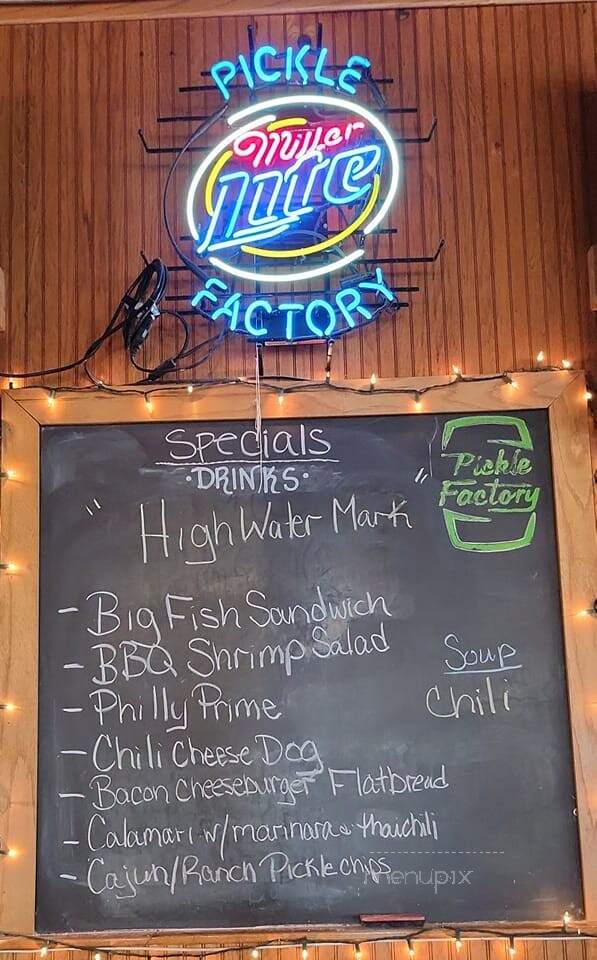 PICKLE
Miller
Lite
FACTORY
Specials
·DRINKS·
Pickle
Factory
" High Water Mark "
- Big Fish Sandwich
- BBQ Shrimp Salad
Soup
- Philly Prime
Chili
- Chili Cheese Dog
- Bacon Cheeseburger Flatbread
- Calamari w/marinara & thaichili
- Cajun/Ranch Pickle chips
menupix